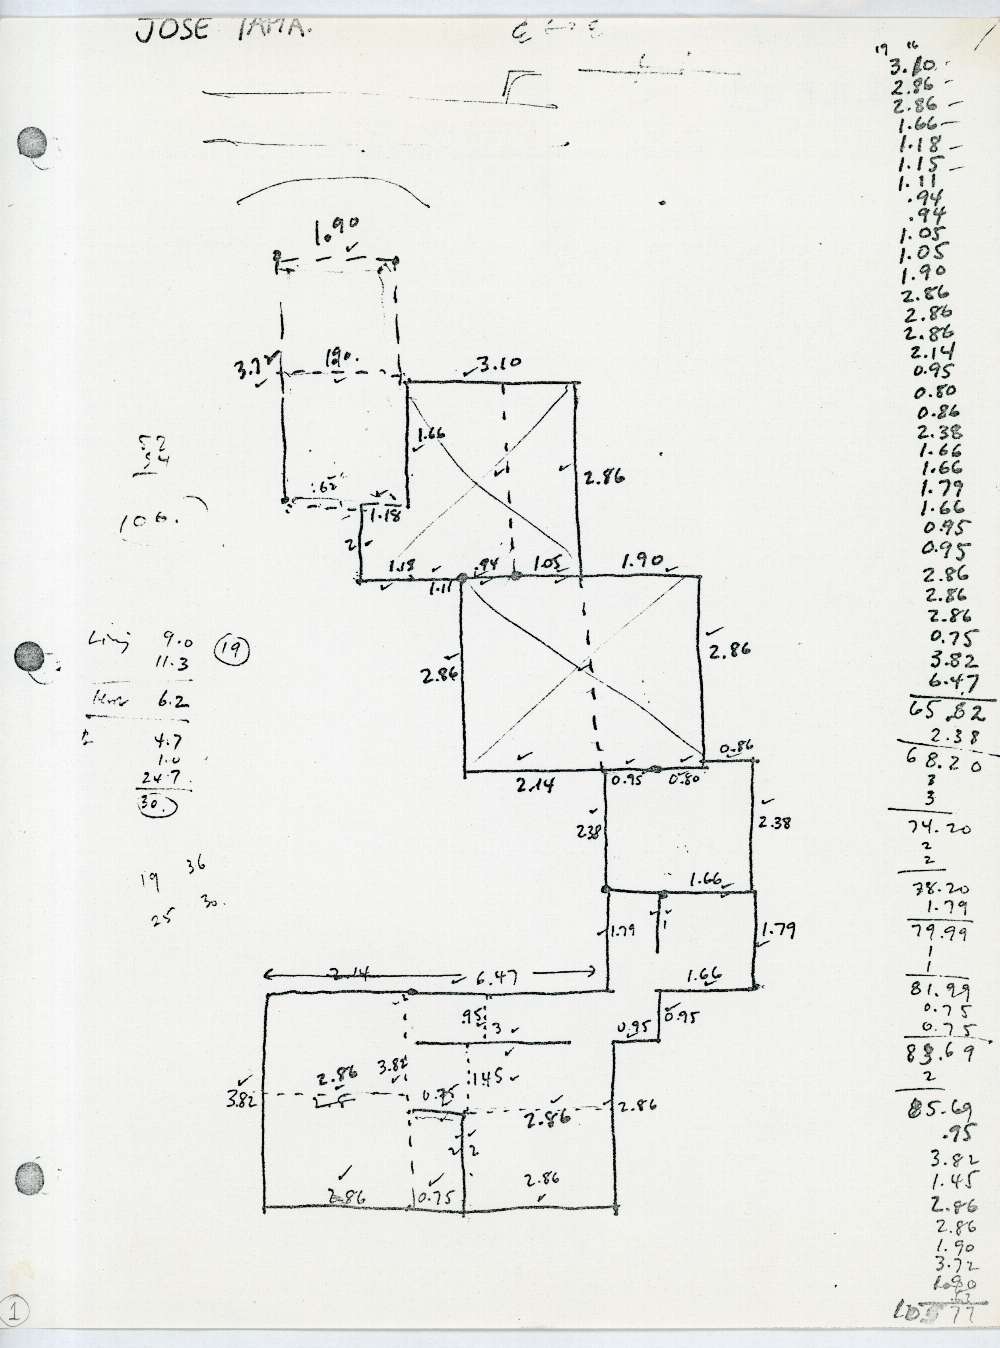 JOSE TAMA.
19 16
3.10
2.86
2.86
1.66
1.18
1.15
1.11
.94
.94
1.05
1.05
1.90
2.86
2.86
2.86
2.14
0.95
0.80
0.86
2.38
1.66
1.66
1.79
1.66
0.95
0.95
2.86
2.86
2.86
0.75
3.82
6.47
65.82
2.38
68.20
3
3
74.20
2
2
78.20
1.79
79.99
1
1
81.99
0.75
0.75
83.69
2
85.69
.95
3.82
1.45
2.86
2.86
1.90
3.72
1.90
.62
105 77
1.90
3.72 1.90.
3.10
1.66
2.86
.62
1.18
2
1.18 1.11 .94 1.05 1.90
2.86 2.86
0.86
2.14 0.95 0.80
2.38 2.38
1.66
1.79 1 1.79
2.14 6.47 1.66
.95 3 0.95 0.95
3.82 1.45
2.86 0.75
3.82 2.5 2.86 2.86
2 2
2.86 0.75 2.86
52
54
106.
Living 9.0 19
11.3
6.2
4.7
1.0
24.7
30.
19 36
25 30.
1